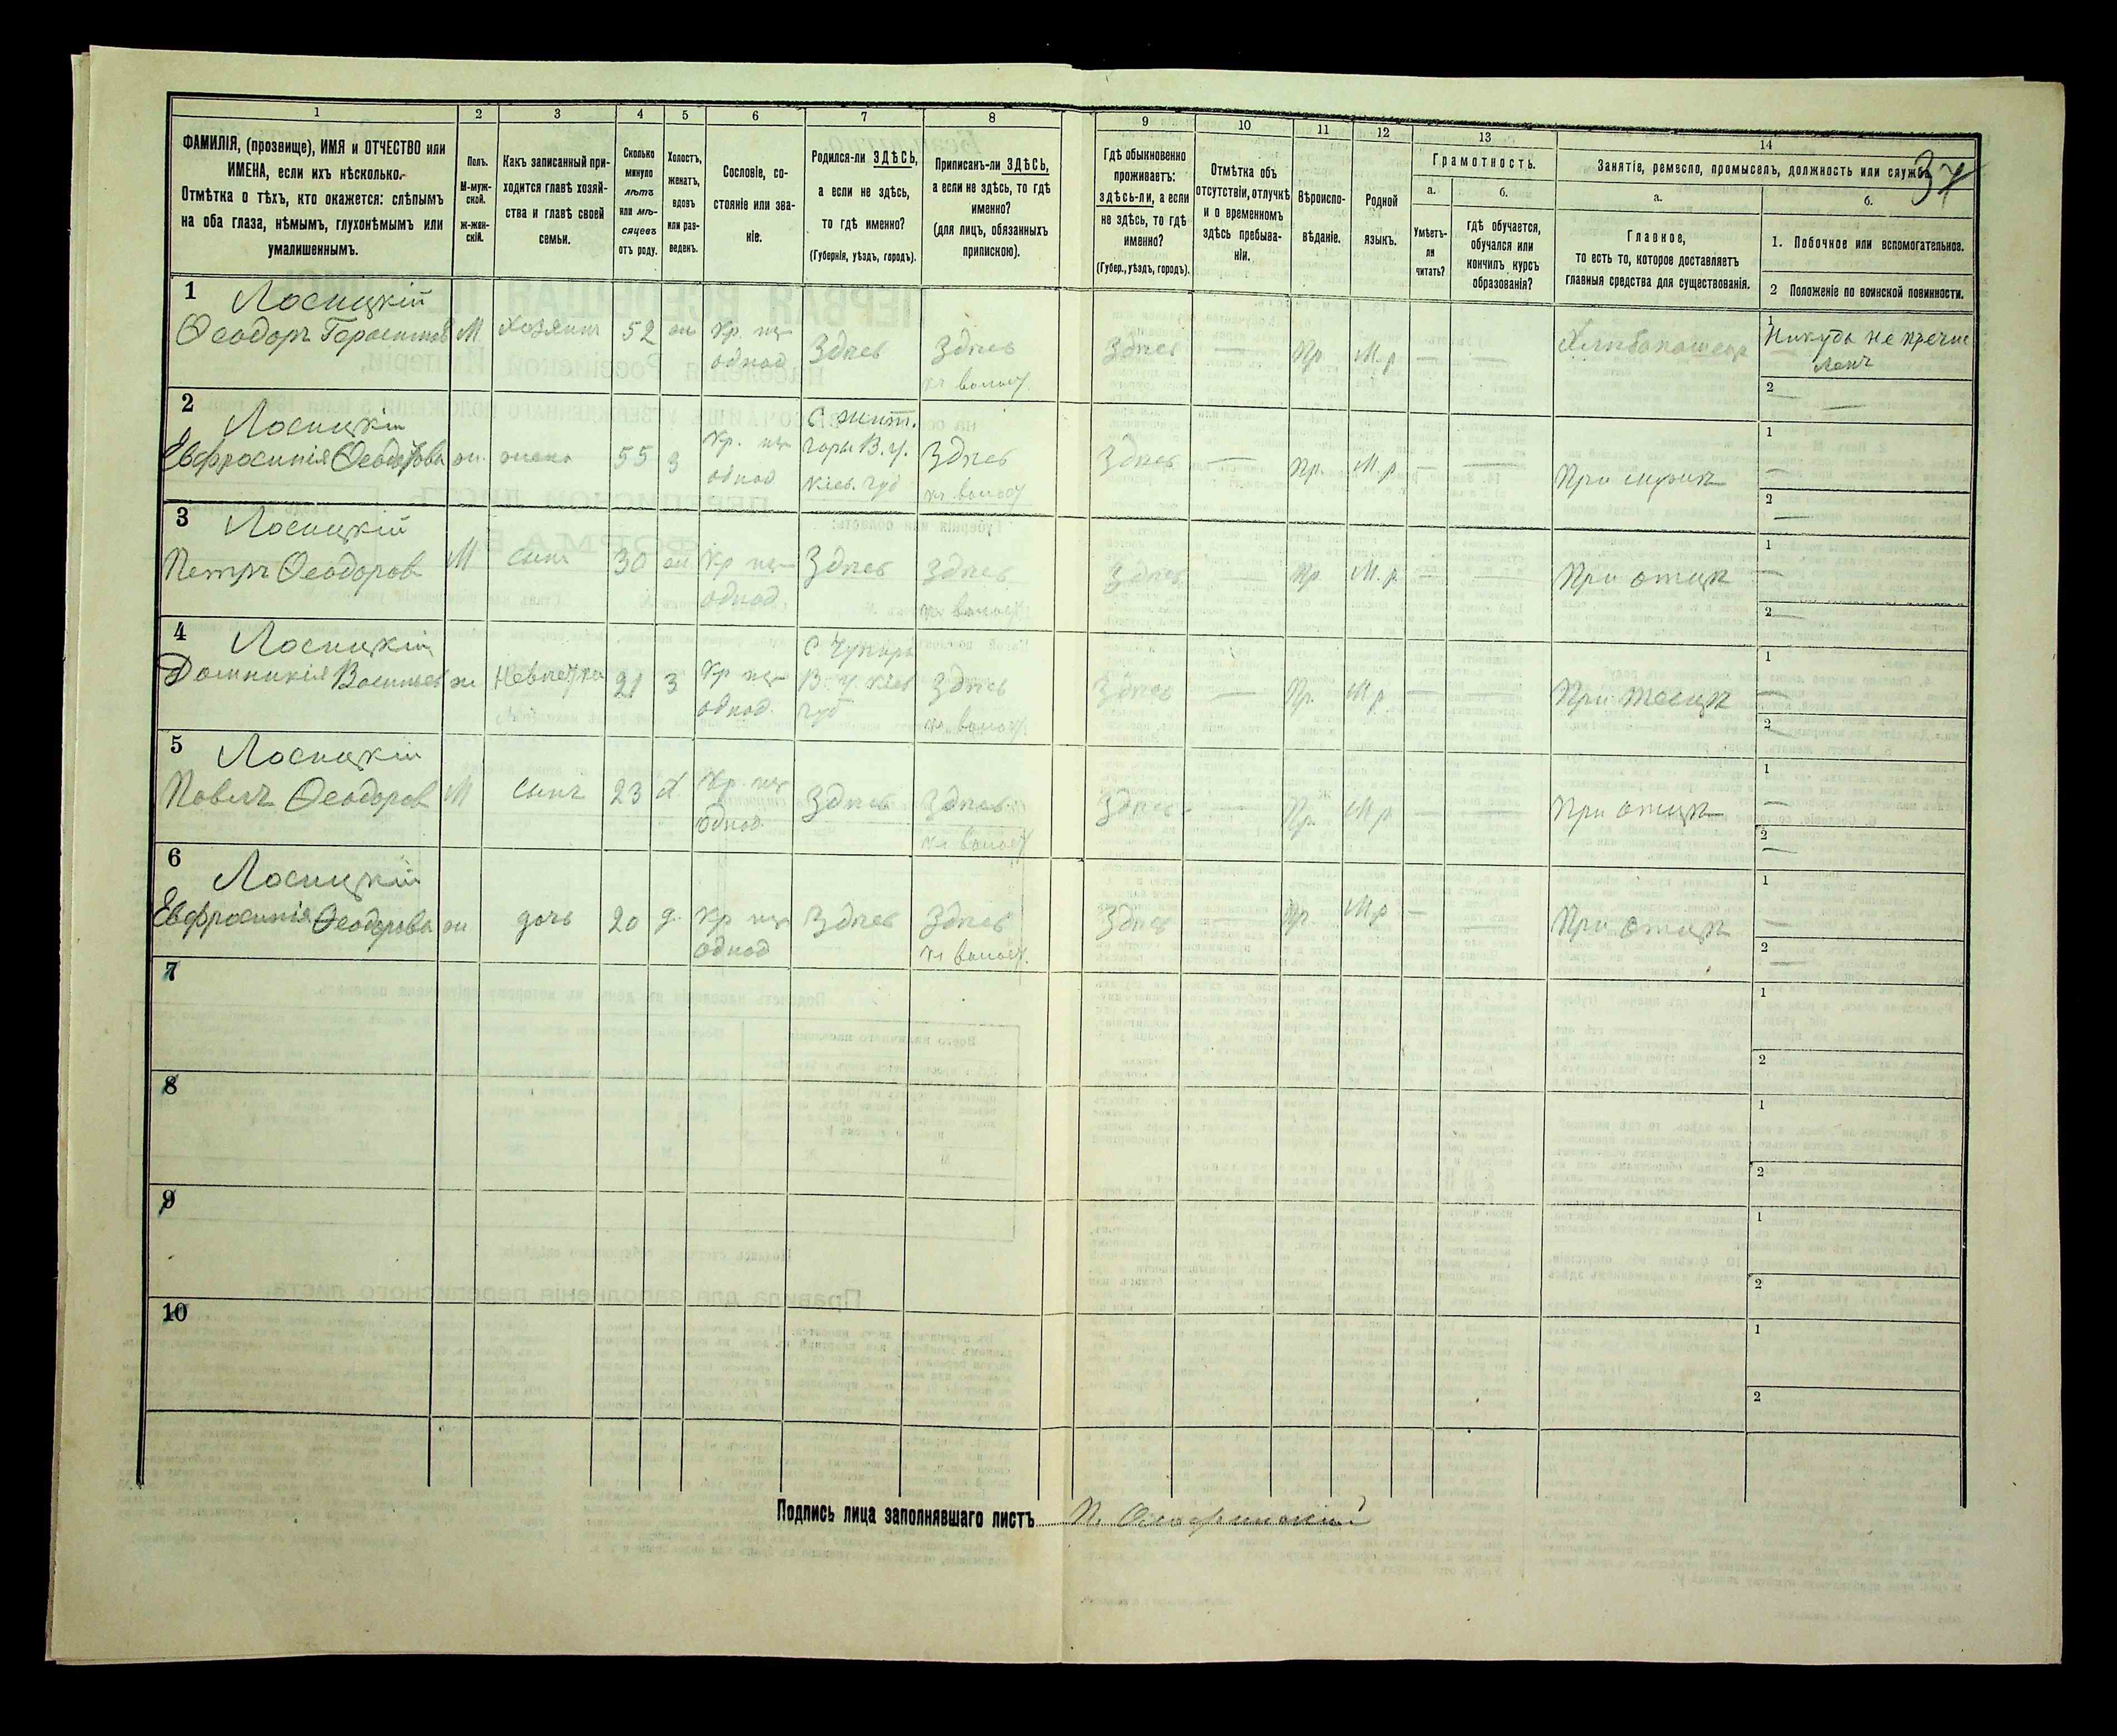 37
1 2 3 4 5 6 7 8 9 10 11 12 13 14
ФАМИЛІЯ, (прозвище), ИМЯ и ОТЧЕСТВО или
ИМЕНА, если ихъ нѣсколько.
Отмѣтка о тѣхъ, кто окажется: слѣпымъ
на оба глаза, нѣмымъ, глухонѣмымъ или
умалишеннымъ.
Полъ.
М-муж-
ской.
ж-жен-
скій.
Какъ записанный при-
ходится главѣ хозяй-
ства и главѣ своей
семьи.
Сколько
минуло
лѣтъ
или мѣ-
сяцевъ
отъ роду.
Холостъ,
женатъ,
вдовъ
или раз-
веденъ.
Сословіе, со-
стояніе или зва-
ніе.
Родился-ли ЗДѢСЬ,
а если не здѣсь,
то гдѣ именно?
(Губернія, уѣздъ, городъ).
Приписанъ-ли ЗДѢСЬ,
а если не здѣсь, то гдѣ
именно?
(для лицъ, обязанныхъ
припискою).
Гдѣ обыкновенно
проживаетъ:
здѣсь-ли, а если
не здѣсь, то гдѣ
именно?
(Губер., уѣздъ, городъ).
Отмѣтка объ
отсутствіи, отлучкѣ
и о временномъ
здѣсь пребыва-
ніи.
Вѣроиспо-
вѣданіе.
Родной
языкъ.
Грамотность.
а.
Умѣетъ-
ли
читать?
б.
гдѣ обучается,
обучался или
кончилъ курсъ
образованія?
Занятіе, ремесло, промыселъ, должность или служба.
а.
Главное,
то есть то, которое доставляетъ
главныя средства для существованія.
б.
1. Побочное или вспомогательное.
2 Положеніе по воинской повинности.
1 Лосицкій
Ѳеодоръ Герасимов М Хозяинъ 52 жн Кр. из однод Здѣсь Здѣсь къ волост Здѣсь — Пр М.р — — Хлѣбопашецъ
1 Никуда не причис
ленъ
2 —
2 Лосицкій
Евфросинія Ѳеодорова ж. жена 55 з Кр. из однод С Жит. горы В.у. Кіев. губ Здѣсь къ волост Здѣсь — Пр. М.р — — При мужѣ
1 —
2 —
3 Лосицкій
Петръ Ѳеодоров М сынъ 30 жн Кр из однод Здѣсь Здѣсь къ волост Здѣсь — Пр М.р — — При отцѣ
1 —
2 —
4 Лосицкій
Домникія Васильев ж Невѣстка 21 з Кр из однод. В. у. Кіев губ Здѣсь къ волост Здѣсь — Пр. М.р — — При
1 —
2 —
5 Лосицкій
Павелъ Ѳеодоров М Сынъ 23 х Кр. из однод. Здѣсь Здѣсь къ волост Здѣсь — Пр. М.р — — При отцѣ
1 —
2 —
6 Лосицкій
Евфросинія Ѳеодорова ж дочь 20 д. Кр из однод Здѣсь Здѣсь къ волост. Здѣсь — Пр. М.р — — При отцѣ
1 —
2 —
7
1
2
8
1
2
9
1
2
10
1
2
Подпись лица заполнявшаго листъ